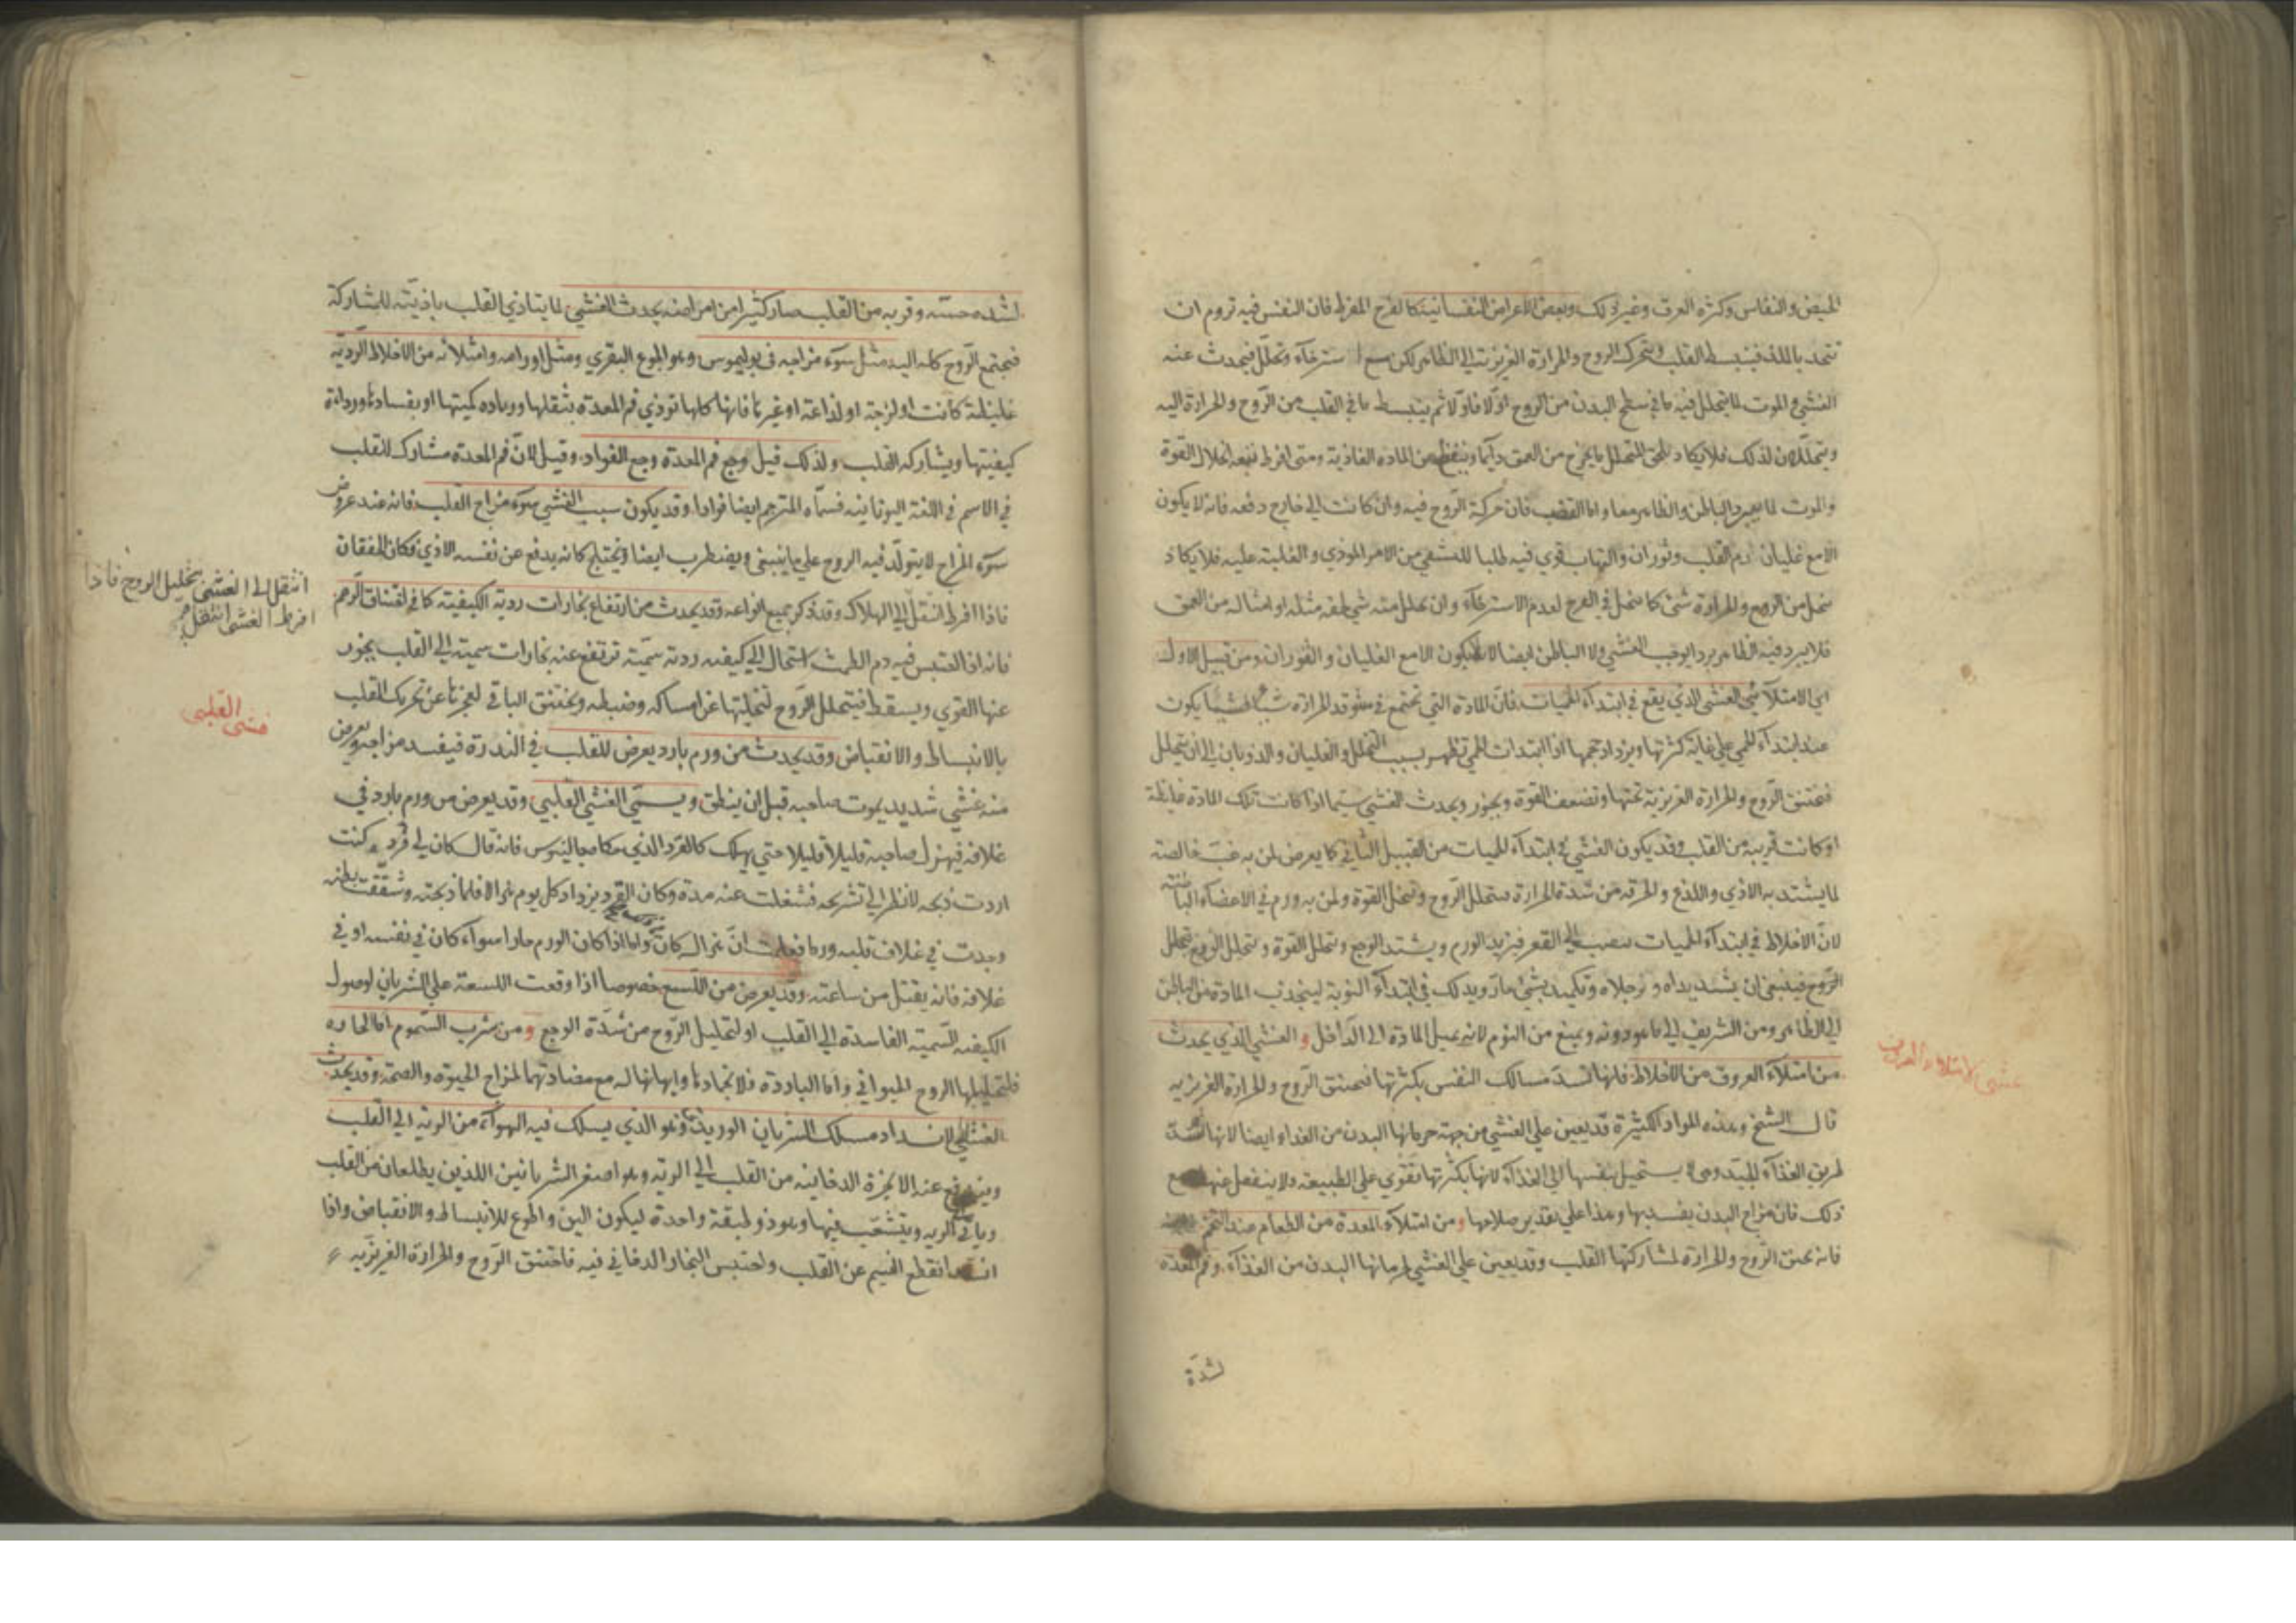 الحيض والنفاس وكثرة العرق وغير ذلك وبعض الاعراض النفسانية كالفرح المفرط فان النفس فيه تروم ان
تتحد باللذ فينبسط القلب ويتحرك الروح والحرارة الغريزية الى الظاهر لكن مع استرخاء وتخلل فيحدث عنه
الغشي والموت لما يتحلل فيه ما في سطح البدن من الروح اولا فاولا ثم ينبسط ما في القلب من الروح والحرارة اليه
ويتحللان لذلك فلا يكاد يلحق المتحلل ما يخرج من العمق دايما وينقطع من المادة الغاذية ومتى افرط تبعه انحلال القوة
والموت لما يبرد الباطن والظاهر معا واما الغضب فان حركة الروح فيه وان كانت الى خارج دفعه فانه لا يكون
الا مع غليان دم القلب وثوران والتهاب قوي فيه طلبا للتشفي من الامر الموذي والغلبة عليه فلا يكاد
يتحلل من الروح والحرارة شئ كما يتحلل في الفرح لعدم الاسترخاء وان تحلل منه شئ لحقه مثله او امثاله من العمق
فلا يبرد فيه الظاهر بردا يوجب الغشي ولا الباطن ايضا لانه لا يكون الا مع الغليان و الفوران ومن قبيل الاول
اي الامتلائي الغشي الذي يقع في ابتداء الحميات فان المادة التي تجتمع في مستوقد الحرارة شيئا فشيئا يكون
عند ابتداء الحمي على غاية كثرتها ويزداد حجمها اذا ابتدات الحمي تظهر بسبب التخلل والغليان والذوبان الى ان يتحلل
فيختنق الروح والحرارة الغريزية تحتها وتضعف القوة ويخور ويحدث الغشي سيما اذا كانت تلك المادة غليظة
او كانت قريبة من القلب وقد يكون الغشي في ابتداء الحميات من القبيل الثاني كما يعرض لمن به غب خالصة
لما يشتد به الاذي واللذع والحرقة من شدة الحرارة فيتحلل الروح وتنحل القوة ولمن به ورم في الاعضاء الباطنة
لان الاخلاط في ابتداء الحميات تنصب الى القعر فيزيد الورم ويشتد الوجع وتحلل القوة ويتحلل الروح تحلل
الروح فينبغي ان يشد يداه و رجلاه وتكميد بشئ حار ويدلك في ابتداء النوبة لينجذب المادة من الباطن
الى الظاهر ومن الشريف الى ما هو دونه ويمنع من النوم لانه يميل المادة الى الداخل و الغشي الذي يحدث
من امتلاء العروق من الاخلاط فلانها تسد مسالك النفس بكثرتها فيختنق الروح والحرارة الغريزيه
قال الشيخ وهذه المواد الكثيرة قد يعين على الغشي من جهة حرمانها البدن من الغذاء ايضا لانها تسد
طريق الغذاء الجيد وهي لا يستحيل بنفسها الى الغذاء لانها بكثرتها تقوي على الطبيعة ولا ينفعل عنها مع
ذلك فان مزاج البدن يفسد بها وهذا على تقدير صلاحها ومن امتلاء المعدة من الطعام عند التخم
فانه يخنق الروح والحرارة لمشاركتها القلب وقد يعين على الغشي لحرمانها البدن من الغذاء وفم المعدة
لشدة
غشي الامتلاء العروق
لشدة حسه وقربه من القلب صار كثيرا من امراضه يحدث الغشي لما يتاذي القلب باذيته للمشاركة
فيجتمع الروح كله اليه مثل سوء مزاجه في بوليموس وهو الجوع البقري ومثل اورامه وامتلائه من الاخلاط الردية
غليظة كانت او لزجة او لذاعة او غيرها فانها كلها توذي فم المعدة بثقلها وزيادة كميتها او بفسادها ورداءة
كيفيتها ويشاركه القلب ولذلك قيل وجع فم المعدة وجع الفواد وقيل لان فم المعدة مشارك للقلب
في الاسم في اللغة اليونانية فسماه المترجم ايضا فوادا وقد يكون سبب الغشي سوء مزاج القلب فانه عند عروض
سوء المزاج لا يتولد فيه الروح على ما ينبغي ويضطرب ايضا ويختلج كانه يدفع عن نفسه الاذي فكان الخفقان
فاذا افرط انتقل الى الهلاك وقد ذكر جميع انواعه وقد يحدث من ارتفاع بخارات ردية الكيفية كما في اختناق الرحم
فانه اذا احتبس فيه دم الطمث استحال الى كيفية ردية سمية ترتفع عنه بخارات سمية الى القلب يخور
عنها القوي ويسقط فيتحلل الروح لتخليتها عن امساكه وضبطه ويختنق الباقي لعجزها عن تحريك القلب
بالانبساط والانقباض وقد يحدث من ورم بارد يعرض للقلب في الندرة فيفسد مزاجه ويعرض
منه غشي شديد يموت صاحبه قبل ان ينطق ويسمي الغشي القلبي وقد يعرض من ورم بارد في
غلافه فيهزل صاحبه قليلا قليلا حتي يهلك كالقرد الذي حكاه جالينوس فانه قال كان لي قرد وكنت
اردت ذبحه لانظر الى تشريحه فشغلت عنه مدة وكان القرد يزداد كل يوم هزالا فلما ذبحته وشققت بطنه
وجدت في غلاف قلبه ورما فعلمت ان هزاله كان واما اذا كان الورم حارا سواء كان في نفسه او في
غلافه فانه يقتل من ساعته وقد يعرض من اللسع خصوصا اذا وقعت اللسعة على الشريان لوصول
الكيفية السمية الفاسدة الى القلب او لتحليل الروح من شدة الوجع و من شرب السموم اما الحارة
فلتحليلها الروح الحيواني واما الباردة فلاخمادها وايهانها له مع مضادتهما لمزاج الحيوة والصحة وقد يحدث
الغشي لانسداد مسلك الشريان الوريدي وهو الذي يسلك فيه الهواء من الرية الى القلب
ويندفع عنه الابخرة الدخانية من القلب الى الرية وهو اصغر الشريانين اللذين يطلعان من القلب
وياتي الرية ويتشعب فيها وهو ذو طبقة واحدة ليكون الين واطوع للانبساط والانقباض واذا
انسد انقطع النسيم عن القلب واحتبس البخار الدخاني فيه فاختنق الروح والحرارة الغريزيه
انتقل الى الغشي بتحليل الروح فاذا
افرط الغشي انتقل
غشي القلبي